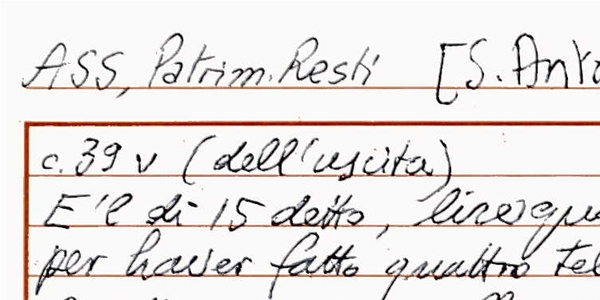 ASS, Patrim. Resti [S. Anto
c. 39 v (dell'uscita)
E l' di 15 detto, lire
per haver fatto quattro tel